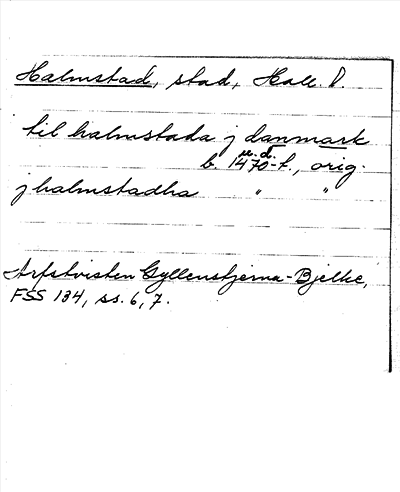 Halmstad, stad, Hall. D.
til halmstada j danmark
u.d.
b. 1470-t., orig.
j halmstadha " "
Arfstvisten Gyllenstjerna-Bjelke,
FSS 134, ss. 6, 7.